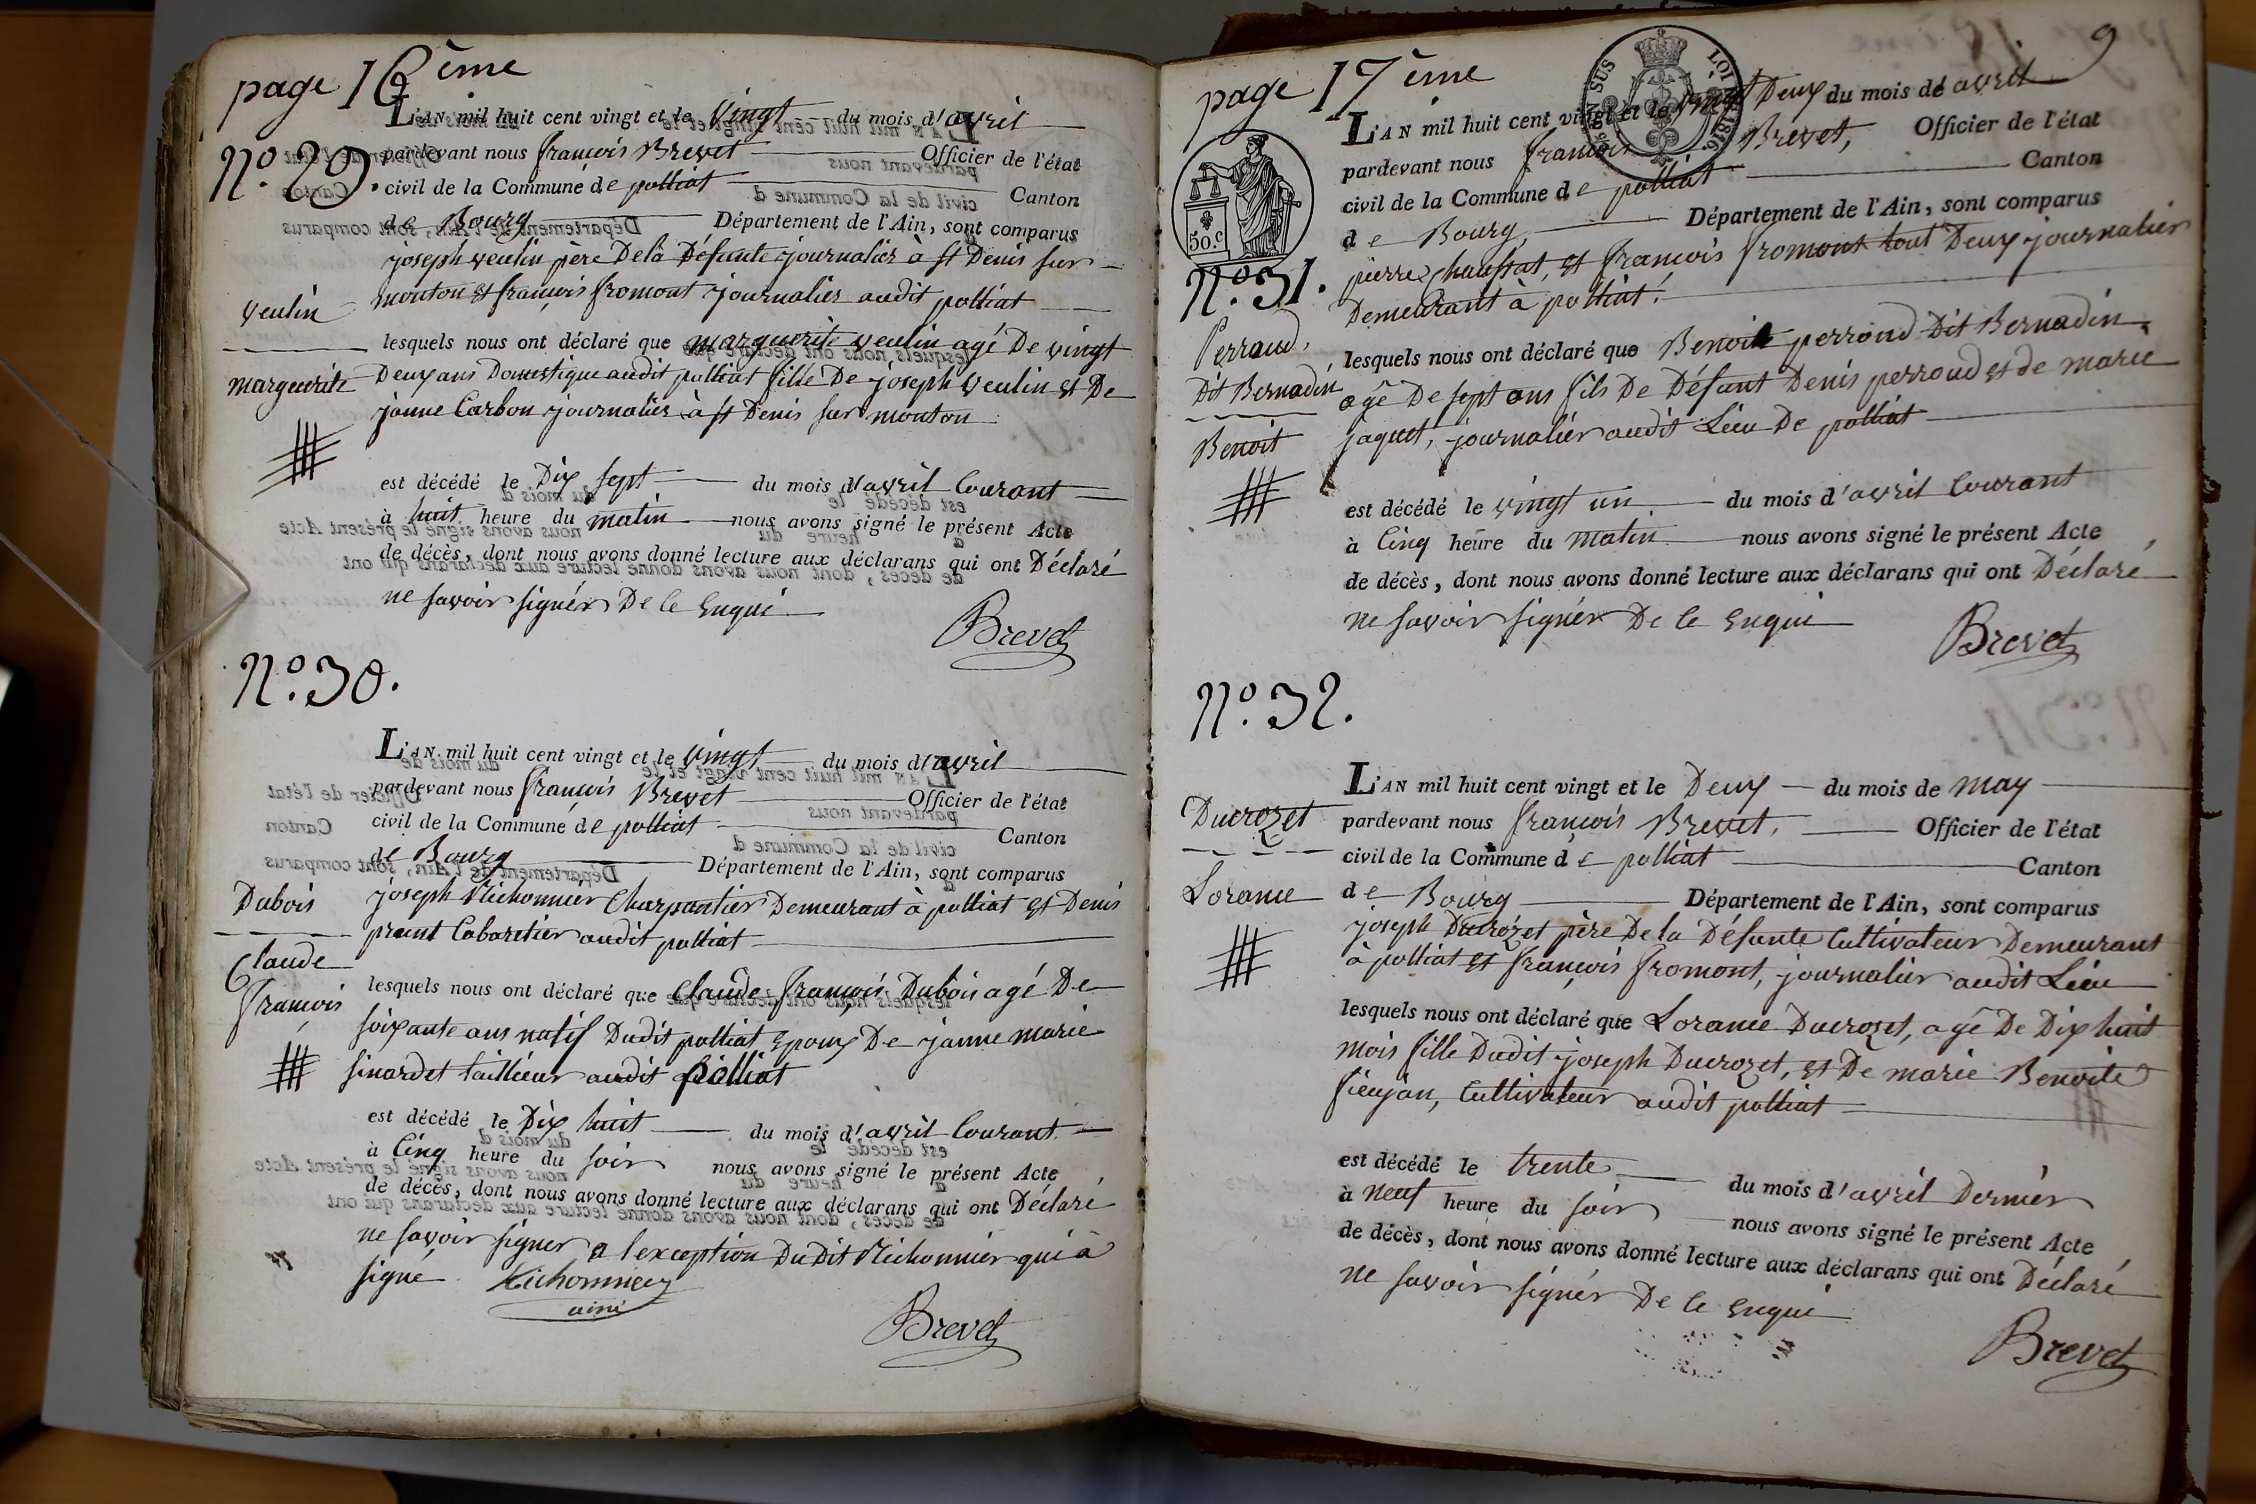 page 16ème
N.º 29.
L'AN mil huit cent vingt et le vingt du mois d'avril
pardevant nous françois Brevet Officier de l'état
civil de la Commune de polliat Canton
de Bourg Département de l'Ain, sont comparus
joseph veulin père De la Défunte journalier à st Denis sur
mouton et françois fromont journalier audit polliat
veulin
marguerite
lesquels nous ont déclaré que marguerite veulin agé De vingt
Deux ans Domestique audit polliat fille De joseph veulin et De
janne Carbon journalier à st Denis sur mouton
est décédé le Dix sept du mois d'avril Courant
à huit heure du matin nous avons signé le présent Acte
de décès, dont nous avons donné lecture aux déclarans qui ont Déclaré
ne savoir signér De ce Enqui
Brevet
N.º 30.
L'AN mil huit cent vingt et le vingt du mois d'avril
pardevant nous françois Brevet Officier de l'état
civil de la Commune de polliat Canton
de Bourg Département de l'Ain, sont comparus
Dubois
Claude
françois
joseph Michonnier Charpantier Demeurant à polliat et Denis
prunt Cabaretier audit polliat
lesquels nous ont déclaré que Claude françois Dubois agé De
soixante ans natif Dudit polliat Epoux De janne marie
sinardet taillieur audit polliat
est décédé le Dix huit du mois d'avril Courant
à Cinq heure du soir nous avons signé le présent Acte
de décès, dont nous avons donné lecture aux déclarans qui ont Déclaré
ne savoir signer a lexception DuDit Michonnier qui à
signé Michonnier
ainé
Brevet
page 17ème
9
LOI 1816
50.c
N.º 31.
L'AN mil huit cent vingt et le vingt Deux du mois de avril
pardevant nous françois Brevet, Officier de l'état
civil de la Commune de polliat Canton
de Bourg Département de l'Ain, sont comparus
pierre chaussat, et françois fromont tout Deux journalier
Demeurant à polliat.
Perraud,
Dit Bernadin
Benoit
lesquels nous ont déclaré que Benoit perroud Dit Bernadin
agê De sept ans fils De Défunt Denis perroud et de marie
jaquet, journalier audit Lieu De polliat
est décédé le vingt un du mois d'avril Courant
à Cinq heure du matin nous avons signé le présent Acte
de décès, dont nous avons donné lecture aux déclarans qui ont Déclaré
ne savoir signér De ce Enqui
Brevet
N.º 32.
L'AN mil huit cent vingt et le Deux du mois de may
pardevant nous françois Brevet, Officier de l'état
civil de la Commune de polliat Canton
de Bourg Département de l'Ain, sont comparus
Ducrozet
Lorance
joseph Ducrozet père De la Défunte Cultivateur Demeurant
à polliat et françois fromont, journalier audit Lieu
lesquels nous ont déclaré que Lorance Ducrozet, agê De Dix huit
mois fille Dudit joseph Ducrozet, et De marie Benoite
sieujan, Cultivateur audit polliat
est décédé le trente du mois d'avril Dernier
à neuf heure du soir nous avons signé le présent Acte
de décès, dont nous avons donné lecture aux déclarans qui ont Déclaré
ne savoir signér De ce Enqui
Brevet